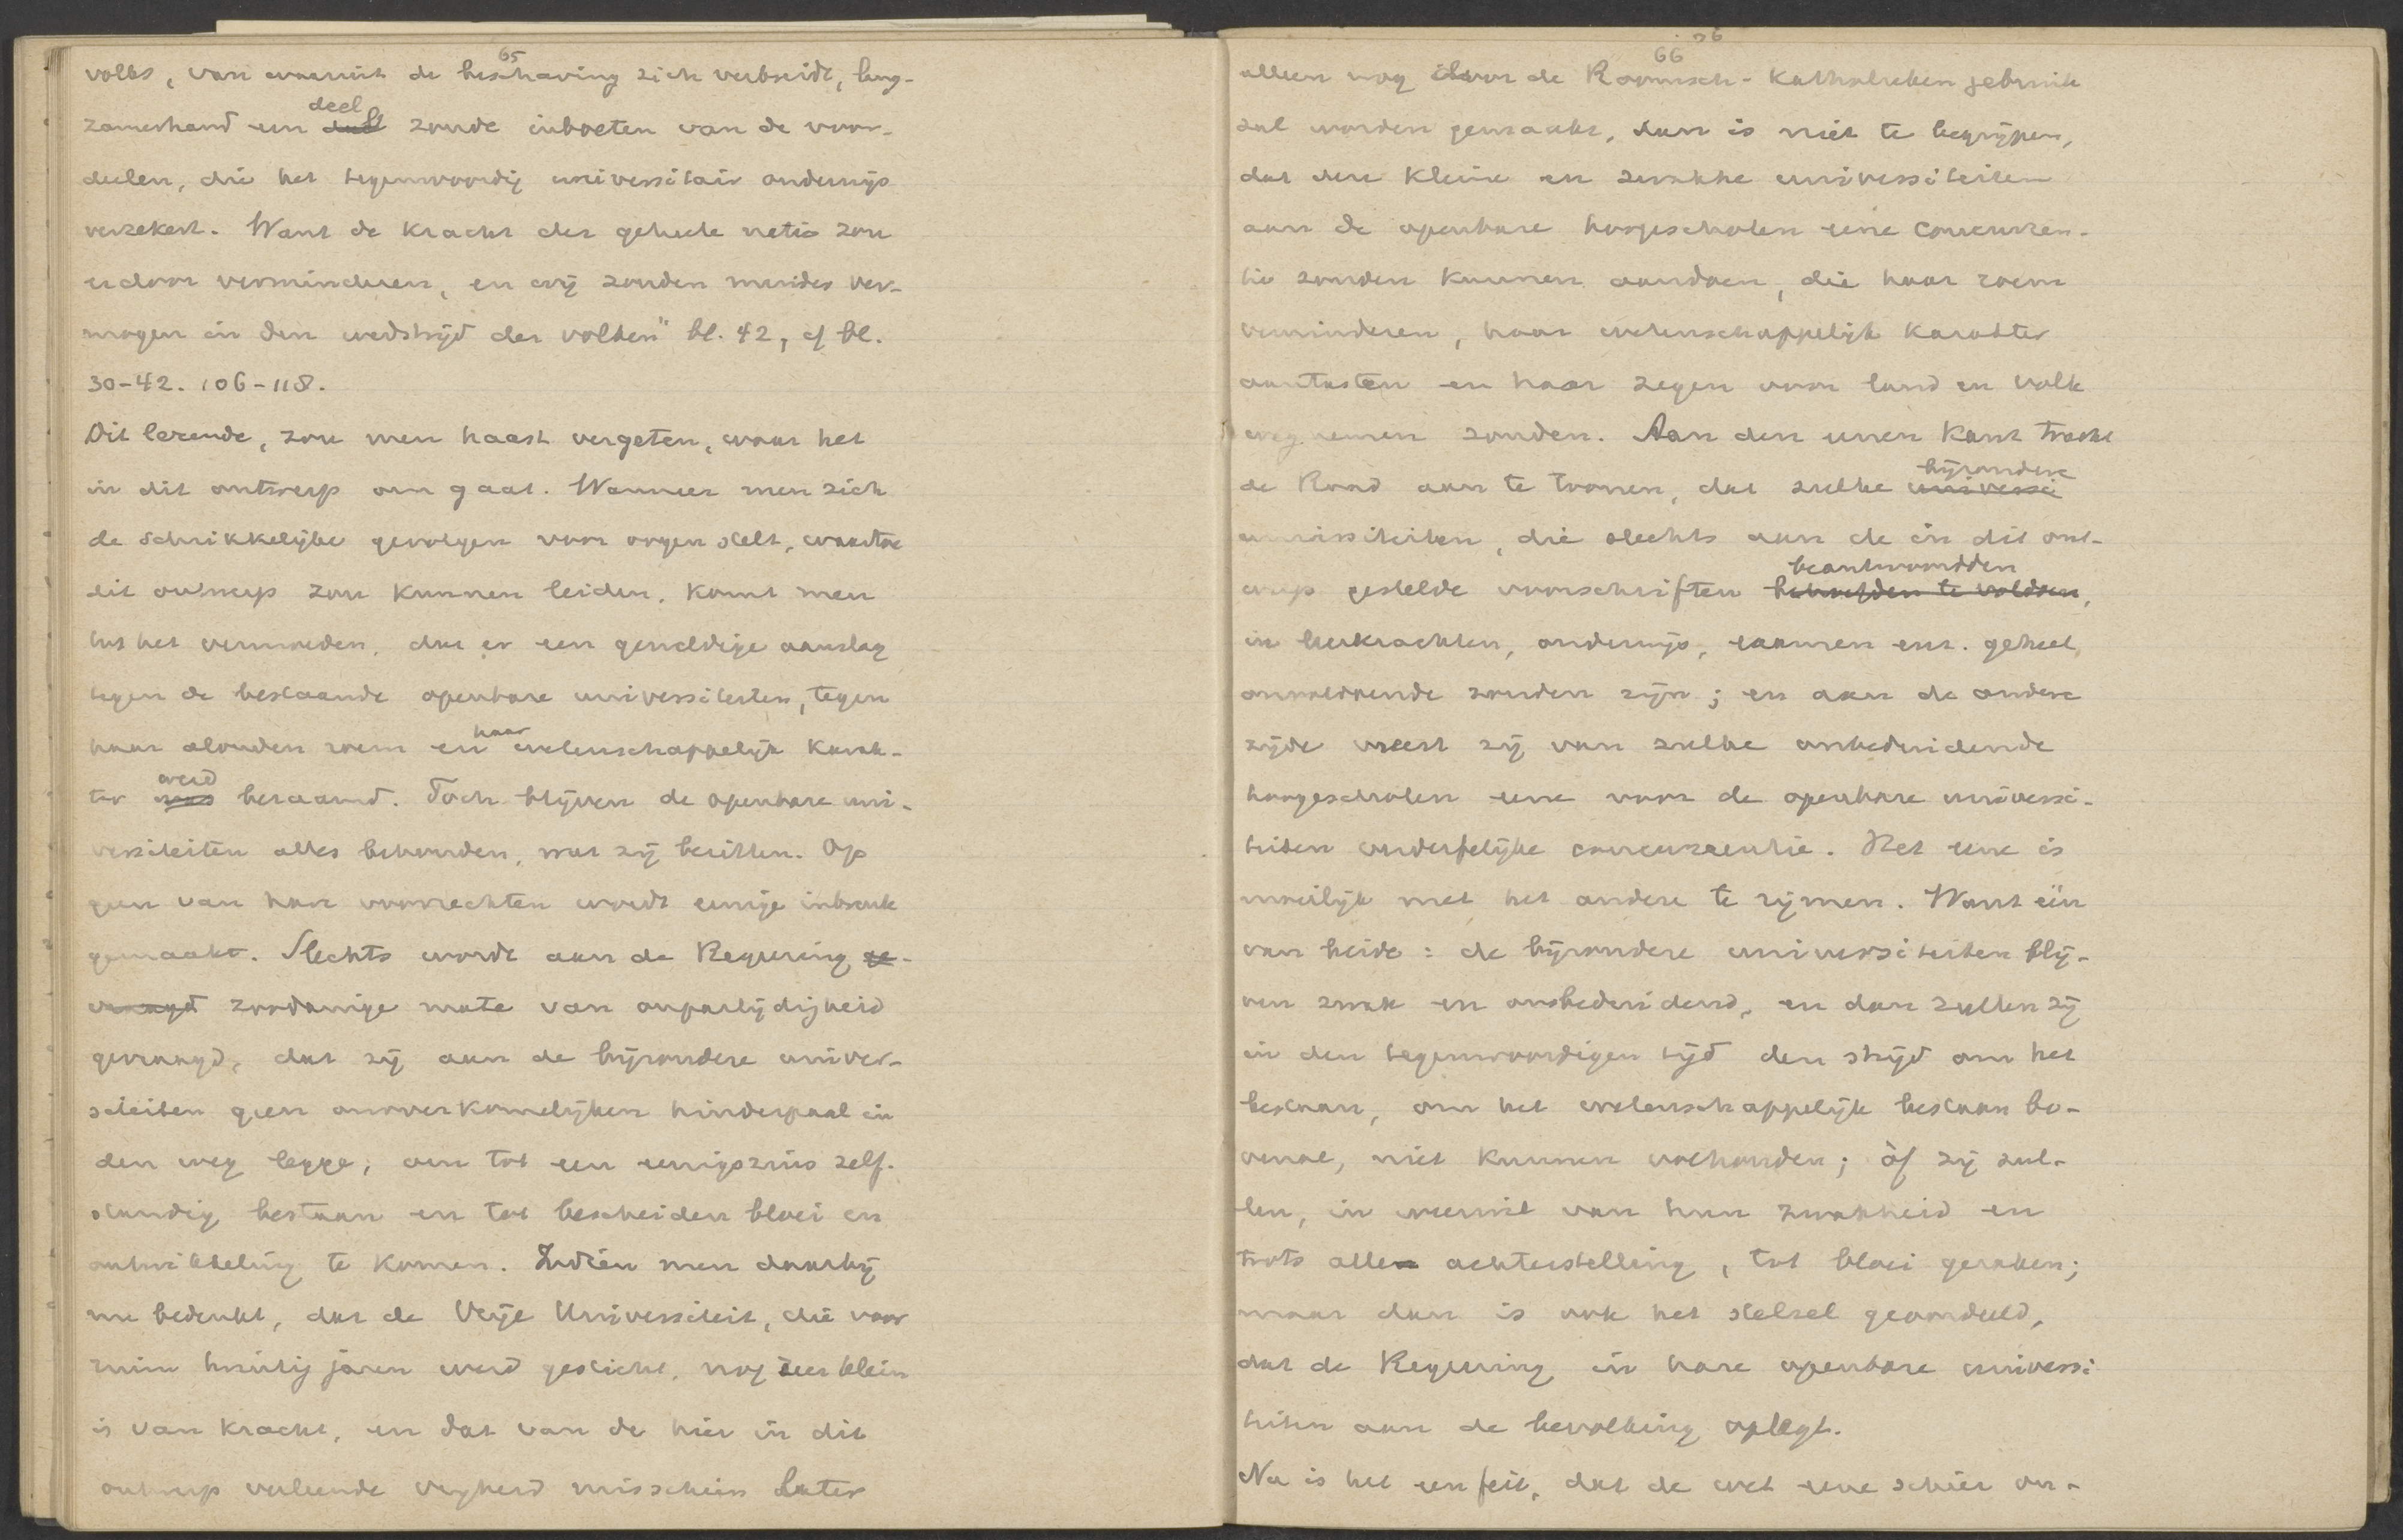 65
volks, van waaruit de beschaving zich verbreidt, lang-
zamerhand een deel zoude inboeten van de voor-
deelen, die het tegenwoordig universitair onderwijs
verzekert. Want de kracht der geheele natie zou
erdoor verminderen, en wij zouden minder ver-
mogen in den wedstrijd der volken" bl. 42, cf bl.
30-42. 106-118.
Dit lezende, zou men haast vergeten, waar het
in dit ontwerp om gaat. Wanneer men zich
de schrikkelijke gevolgen voor oogen stelt, waartoe
dit ontwerp zou kunnen leiden, komt men
tot het vermoeden, dat er een geweldige aanslag
tegen de bestaande openbare universiteiten, tegen
haar alouden roem en haar wetenschappelijk karak-
ter werd beraamd. Toch blijven de openbare uni-
versiteiten alles behouden, wat zij bezitten. Op
geen van hun voorrechten wordt eenige inbreuk
gemaakt. Slechts wordt aan de Regeering ge-
vraagd zoodanige mate van onpartijdigheid
gevraagd, dat zij aan de bijzondere univer-
siteiten geen onoverkomelijken hinderpaal in
den weg legge, om tot een eenigszins zelf-
standig bestaan en tot bescheiden bloei en
ontwikkeling te komen. Indien men daarbij
nu bedenkt, dat de Vrije Universiteit, die voor
ruim twintig jaren werd gesticht, nog zeer klein
is van kracht, en dat van de hier in dit
ontwerp verleende vrijheid misschien later
66
alleen nog door de Roomsch-Katholieken gebruik
zal worden gemaakt, dan is niet te begrijpen,
dat deze kleine en zwakke universiteiten
aan de openbare hoogescholen eene concurren-
tie zouden kunnen aandoen, die haar roem
verminderen, haar wetenschappelijk karakter
aantasten en haar zegen voor land en volk
wegnemen zouden. Aan den eenen kant tracht
de Raad aan te toonen, dat zulke universi bijzondere
universiteiten, die slechts aan de in dit ont-
werp gestelde voorschriften behoefden te voldoen, beantwoordden
in leerkrachten, onderwijs, examen enz. geheel
onvoldoende zouden zijn; en aan de andere
zijde vreest zij van zulke onbeduidende
hoogescholen eene voor de openbare universi-
teiten verderfelijke concurrentie. Het eene is
moeilijk met het andere te rijmen. Want één
van beide: de bijzondere universiteiten blij-
ven zwak en onbeduidend, en dan zullen zij
in den tegenwoordigen tijd den strijd om het
bestaan, om het wetenschappelijk bestaan bo-
venal, niet kunnen volhouden; òf zij zul-
len, in weerwil van hun zwakheid en
trots alle achterstelling, tot bloei geraken;
maar dan is ook het stelsel geoordeeld,
dat de Regeering in hare openbare universi
teiten aan de bevolking oplegt.
Nu is het een feit, dat de wet eene schier on-